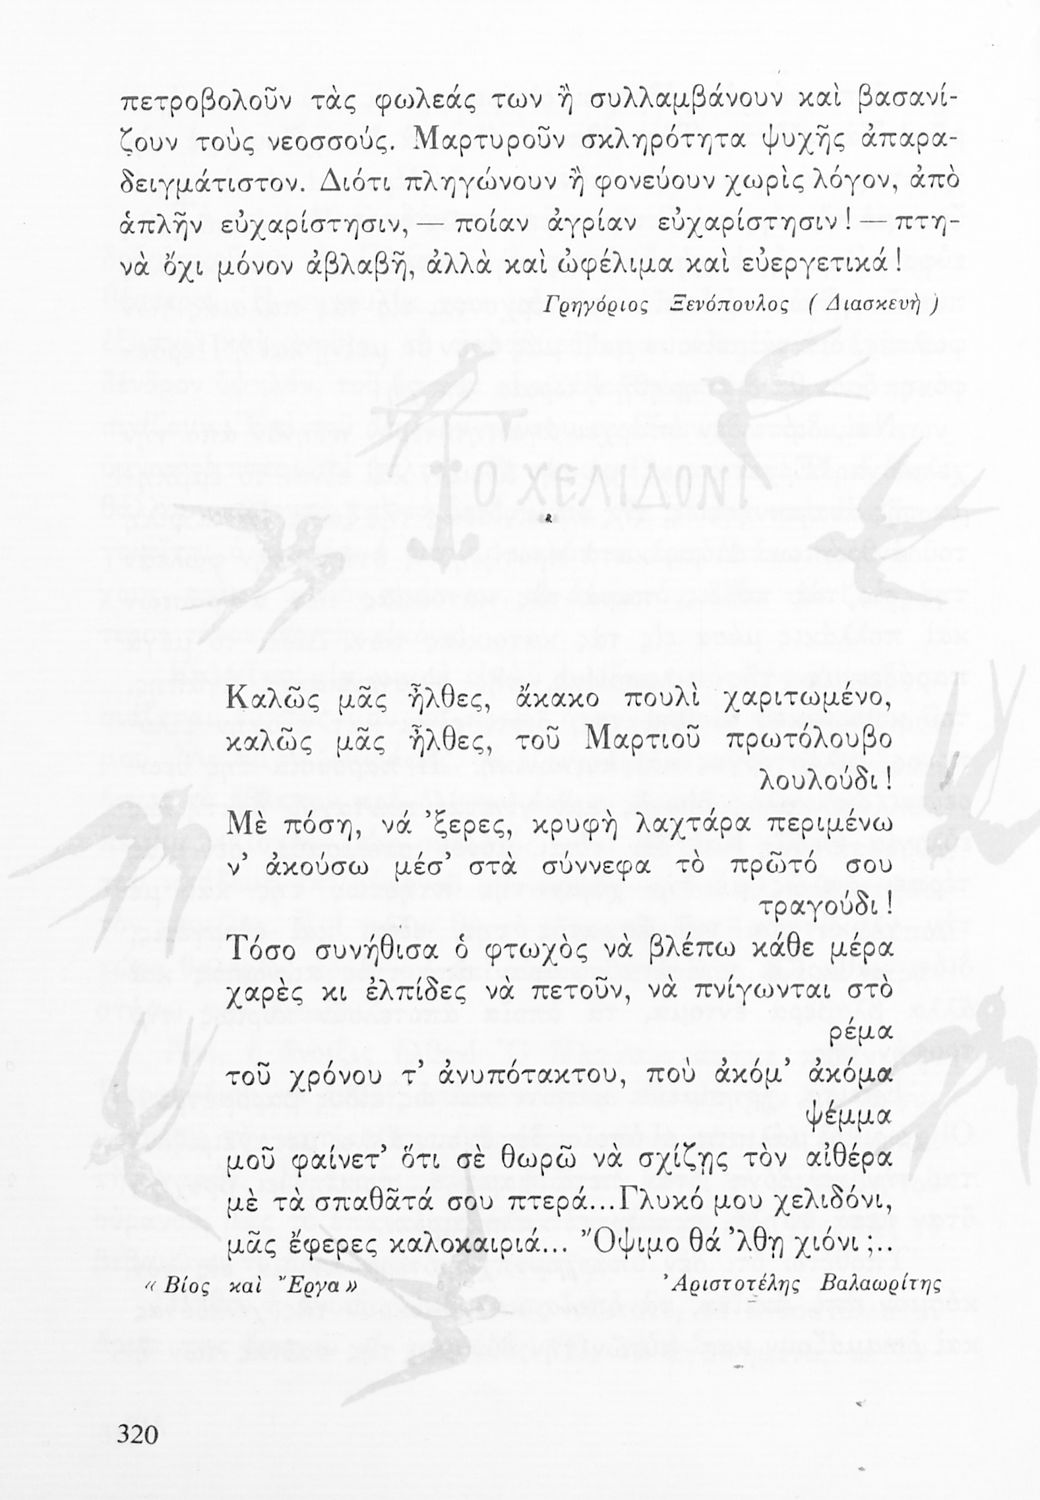 πετροβολοῦν τὰς φωλεάς των ἢ συλλαμβάνουν καὶ βασανί-
ζουν τοὺς νεοσσούς. Μαρτυροῦν σκληρότητα ψυχῆς ἀπαρα-
δειγμάτιστον. Διότι πληγώνουν ἢ φονεύουν χωρὶς λόγον, ἀπὸ
ἁπλῆν εὐχαρίστησιν, — ποίαν ἀγρίαν εὐχαρίστησιν ! — πτη-
νὰ ὄχι μόνον ἀβλαβῆ, ἀλλὰ καὶ ὠφέλιμα καὶ εὐεργετικά !
Γρηγόριος Ξενόπουλος ( Διασκευὴ )
ΤΟ ΧΕΛΙΔΟΝΙ
Καλῶς μᾶς ἦλθες, ἄκακο πουλὶ χαριτωμένο,
καλῶς μᾶς ἦλθες, τοῦ Μαρτιοῦ πρωτόλουβο
λουλούδι !
Μὲ πόση, νά ’ξερες, κρυφὴ λαχτάρα περιμένω
ν’ ἀκούσω μέσ’ στὰ σύννεφα τὸ πρῶτό σου
τραγούδι !
Τόσο συνήθισα ὁ φτωχὸς νὰ βλέπω κάθε μέρα
χαρὲς κι ἐλπίδες νὰ πετοῦν, νὰ πνίγωνται στὸ
ρέμα
τοῦ χρόνου τ’ ἀνυπότακτου, ποὺ ἀκόμ’ ἀκόμα
ψέμμα
μοῦ φαίνετ’ ὅτι σὲ θωρῶ νὰ σχίζῃς τὸν αἰθέρα
μὲ τὰ σπαθᾶτά σου πτερά...Γλυκό μου χελιδόνι,
μᾶς ἔφερες καλοκαιριά... Ὄψιμο θά ’λθῃ χιόνι ;..
« Βίος καὶ Ἔργα »
Ἀριστοτέλης Βαλαωρίτης
320